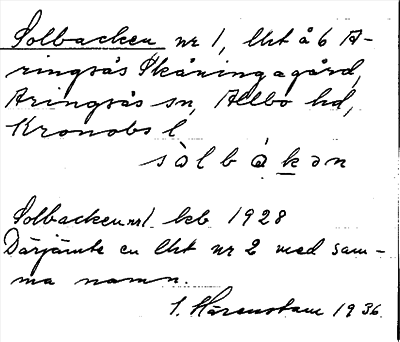 Solbacken nr 1, lht å 6 A-
ringsås Skåningagård,
Aringsås sn, Allbo hd,
Kronobs l
sòlbákən
Solbacken nr 1. kb 1928
Därjämte en lht nr 2 med sam-
ma namn.
I. Härenstam 1936.